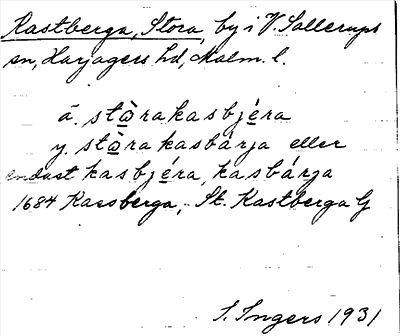 Kastberga, Stora, by i V. Sallerups
sn, Harjagers hd, Malm. l.
ä. stòrakasbjéra
y. stòrakasbárja eller
endast kasbjéra, kasbárja
1684 Kassberga, St. Kastberga G
S. Ingers 1931